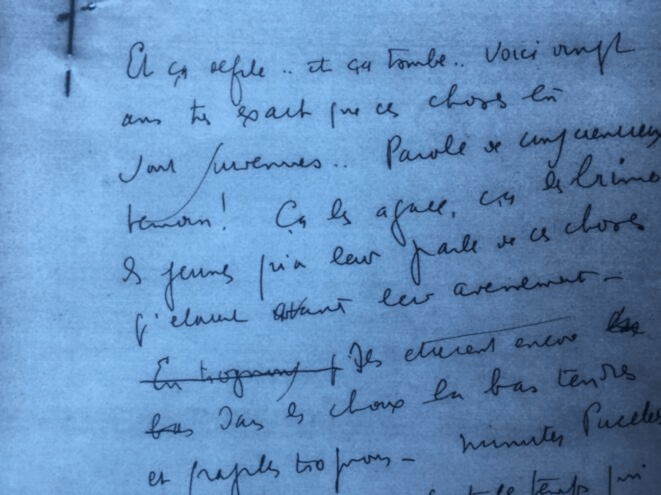 Et ça défile .. et ça tombe .. Voici vingt
ans très exact que ces choses là
sont survenues .. Parole de cinquantenaire
témoin ! Ça les agace, ça les brime
les jeunes qu'on leur parle de ces choses
q' étaient avant leur avènement -
Ils étaient encore
dans les choux là bas tendres
et trognons - minutes Pucelles
temps